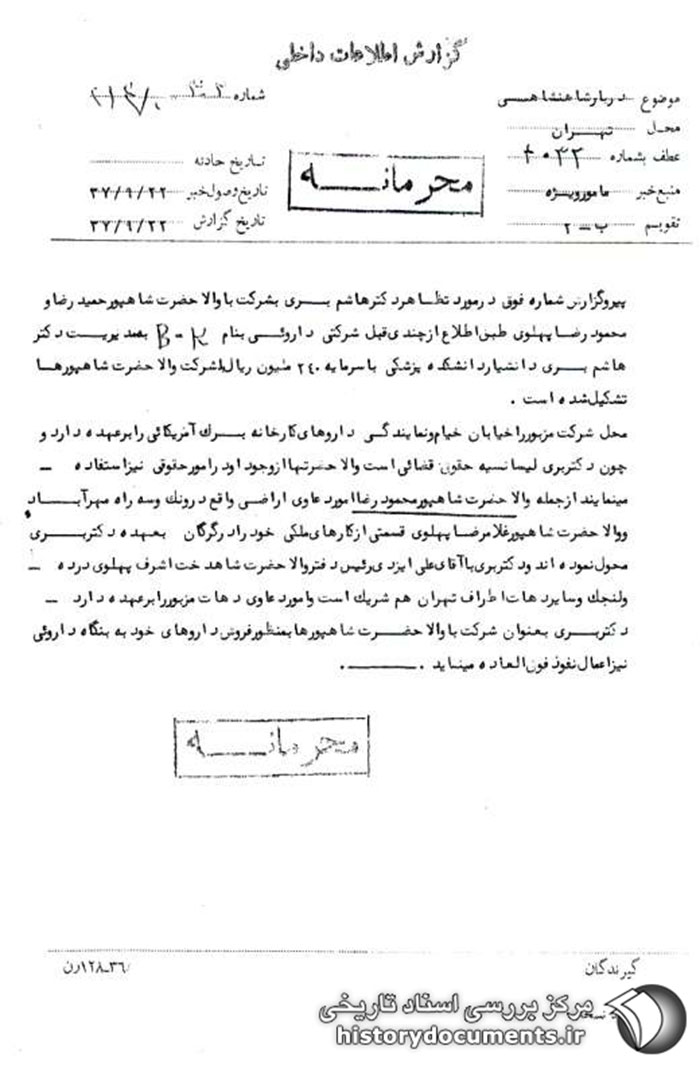 گزارش اطلاعات داخلی
موضوع دربار شاهنشاهی
شماره
محل تهران
عطف بشماره ۴۰۳۲
تاریخ حادثه
محرمانه
منبع خبر مامور ویژه
تاریخ وصول خبر ۳۷/۹/۲۲
تقویم ب - ۲
تاریخ گزارش ۳۷/۹/۲۲
پیرو گزارش شماره فوق در مورد تظاهر دکتر هاشم بری بشرکت با والا حضرت شاهپور حمید رضا و
محمود رضا پهلوی طبق اطلاع از چندی قبل شرکتی داروئی بنام B - K بمدیریت دکتر
هاشم بری دانشیار دانشکده پزشکی با سرمایه ۲۴۰ ملیون ریال باشرکت والا حضرت شاهپورها
تشکیل شده است .
محل شرکت مزبور را خیابان خیام و نمایندگی داروهای کارخانه برک آمریکائی را برعهده دارد و
چون دکتر بری لیسانسیه حقوق قضائی است والا حضرتها از وجود او در امور حقوقی نیز استفاده –
مینمایند از جمله والا حضرت شاهپور محمود رضا امور دعاوی اراضی واقع در ونک و سه راه مهرآباد
و والا حضرت شاهپور غلامرضا پهلوی قسمتی از کارهای ملکی خود را در گرگان بعهده دکتر بری
محول نموده اند و دکتر بری با آقای علی ایزدی رئیس دفتر والا حضرت شاهدخت اشرف پهلوی در ده –
ولنجک و سایر دهات اطراف تهران هم شریک است و امور دعاوی دهات مزبور را برعهده دارد –
دکتر بری بعنوان شرکت با والا حضرت شاهپورها بمنظور فروش داروهای خود به بنگاه داروئی
نیز اعمال نفوذ فوق العاده مینماید .
محرمانه
گیرندگان
۳۶-۱۲۸رن
مرکز بررسی اسناد تاریخی
historydocuments.ir